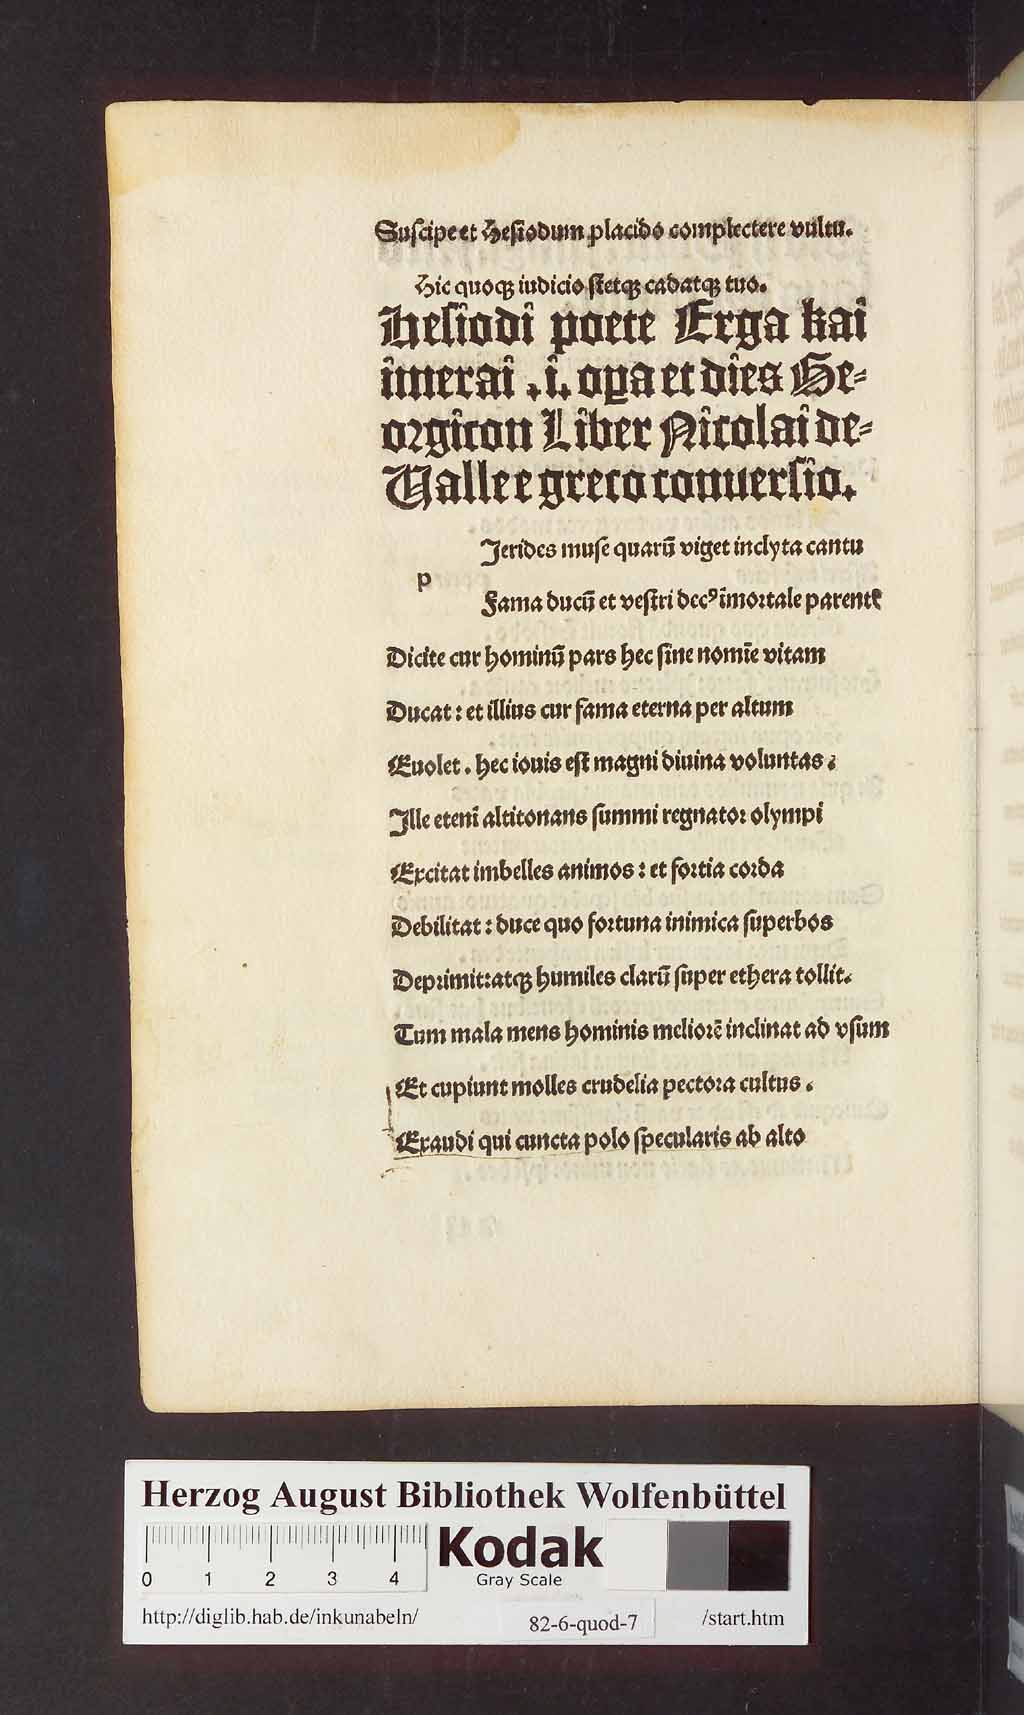 Suſcipe et Heſiodum placido complectere vultu.
Hic quoqꝫ iudicio ſtetqꝫ cadatqꝫ tuo.
Heſiodi poete Erga kai
imerai .i. oꝑa et dies Ge⸗
orgicon Liber Nicolai de⸗
Valle e greco conuerſio.
Ierides muſe quarū viget inclyta cantu
p
Fama ducū et veſtri decꝰ īmortale parentē
Dicite cur hominū pars hec ſine nomīe vitam
Ducat : et illius cur fama eterna per altum
Euolet . hec iouis eſt magni diuina voluntas :
Ille etenī altitonans ſummi regnator olympi
Excitat imbelles animos : et fortia corda
Debilitat : duce quo fortuna inimica ſuperbos
Deprimit:atqꝫ humiles clarū ſuper ethera tollit.
Tum mala mens hominis meliorē inclinat ad vſum
Et cupiunt molles crudelia pectora cultus .
Exaudi qui cuncta polo ſpecularis ab alto
Herzog August Bibliothek Wolfenbüttel
Kodak
Gray Scale
0 1 2 3 4
http://diglib.hab.de/inkunabeln/ 82-6-quod-7 /start.htm